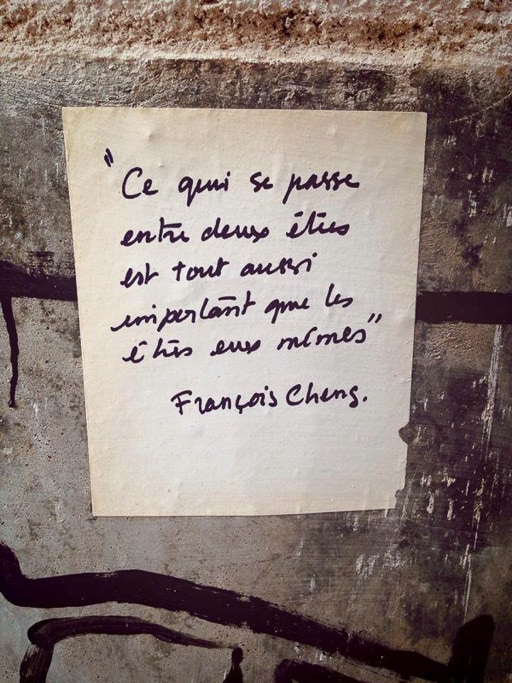 "Ce qui se passe
entre deux êtres
est tout aussi
important que les
êtres eux mêmes"
François Cheng.